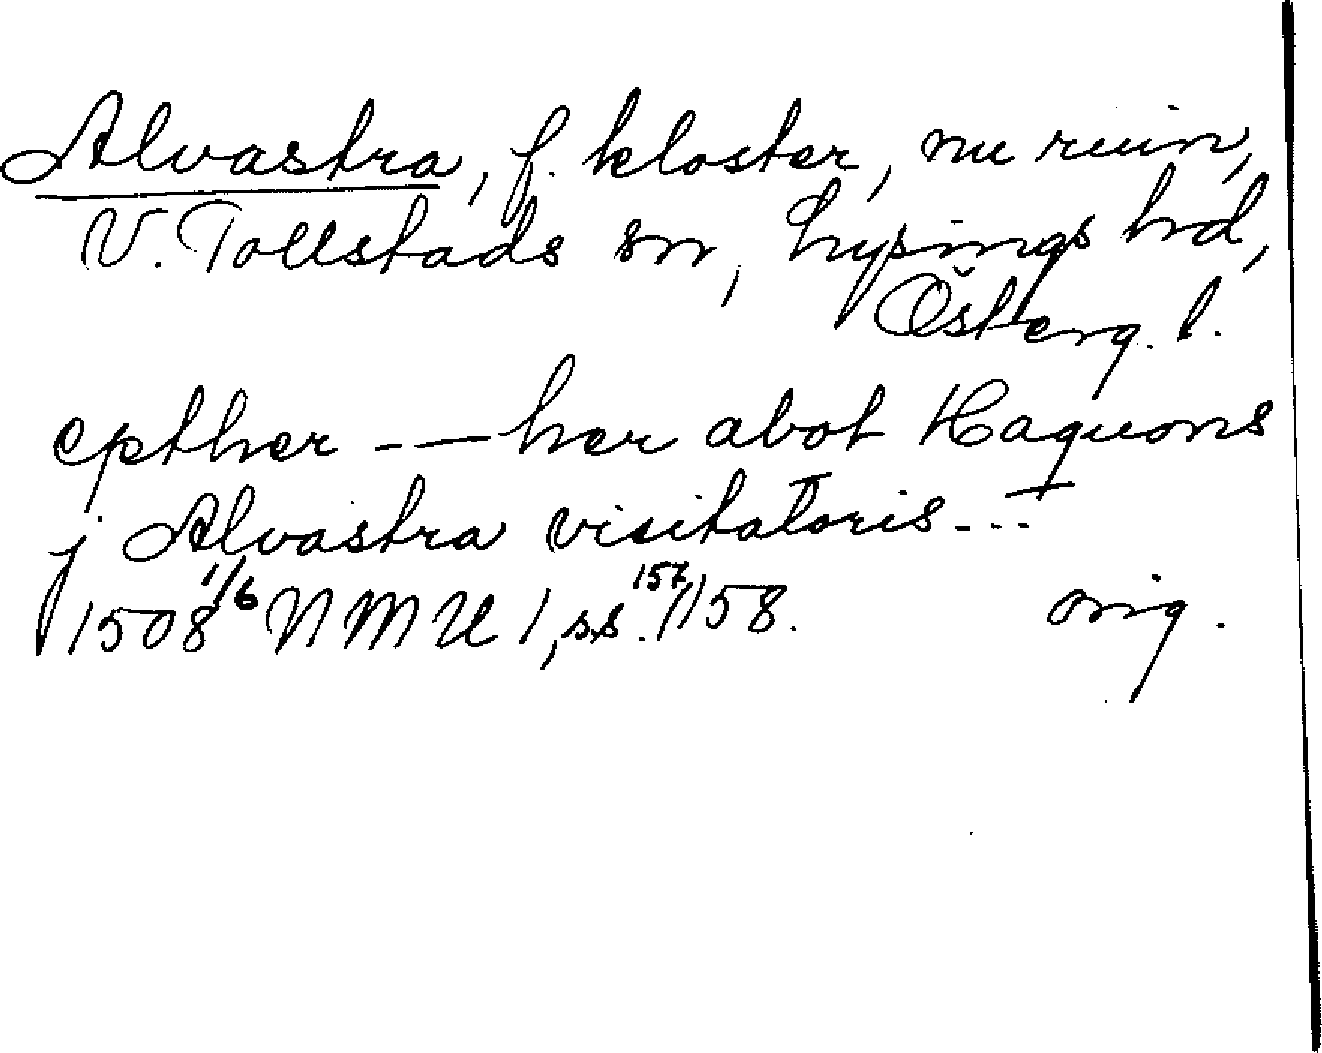 Alvastra, f. kloster, nu ruin,
V. Tollstads sn, Lysings hd,
Österg. l.
epther -- — her abot Haquons
j Alvastra visitatoris ---
1508 1/6 NMU 1, ss. 157/158. orig.